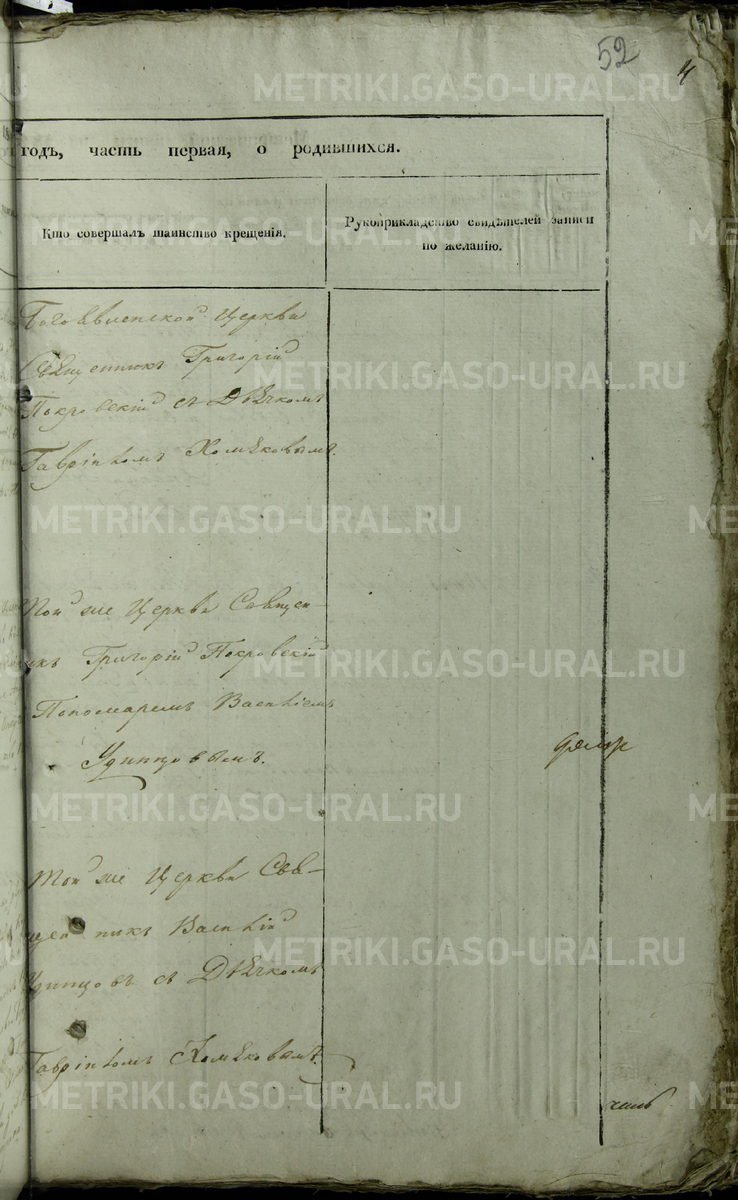 52
METRIKI.GASO-URAL.RU
годъ, часть первая, о родившихся.
Кто совершалъ таинство крещенія.
Рукоприкладство свидѣтелей записи
по желанію.
Богоявленской Церкви
Священникъ Григорій
Покровскій съ Дьячкомъ
Гавріиломъ Хомяковымъ.
METRIKI.GASO-URAL.RU
METRIKI.GASO-URAL.RU
Той же Церкви Священ-
икъ Григорій Покровскій
METRIKI.GASO-URAL.RU
Пономаремъ Василіемъ
Удинцовымъ.
METRIKI.GASO-URAL.RU
Той же Церкви Свя-
щенникъ Василій
METRIKI.GASO-URAL.RU
Удинцовъ съ Дьячкомъ
Гавріиломъ Хомяковымъ.
METRIKI.GASO-URAL.RU